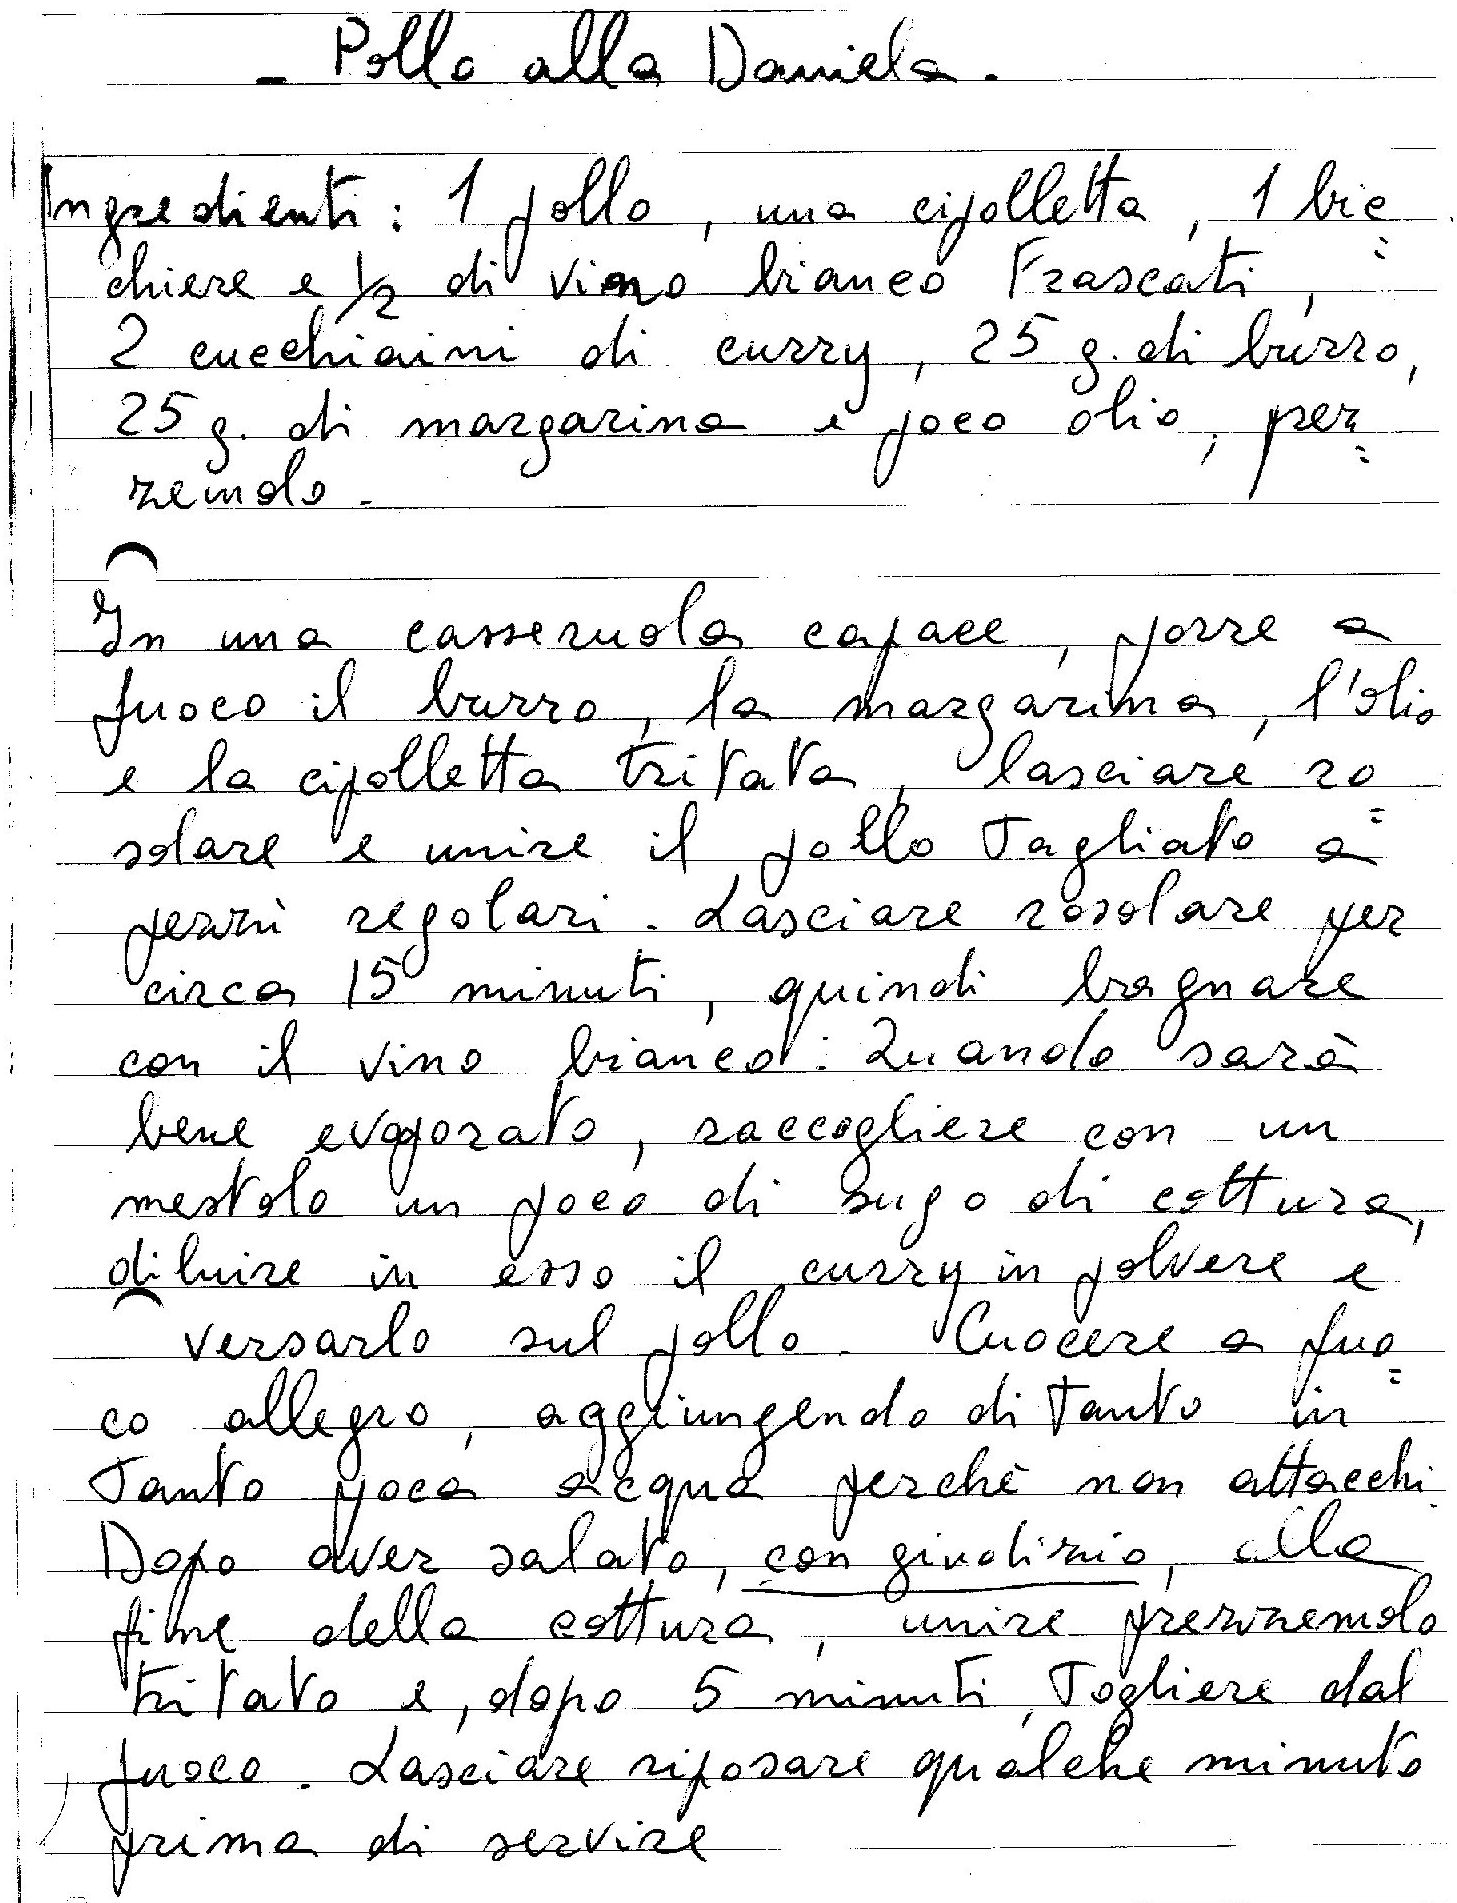 - Pollo alla Daniela.
Ingredienti: 1 pollo, una cipolletta, 1 bic=
chiere e 1/2 di vino bianco Frascati,
2 cucchiaini di curry, 25 g. di burro,
25 g. di margarina e poco olio, per=
zemolo.
In una casseruola capace, porre a
fuoco il burro, la margarina, l'olio
e la cipolletta tritata, lasciare ro=
solare e unire il pollo tagliato a
pezzi regolari. Lasciare rosolare per
circa 15 minuti, quindi bagnare
con il vino bianco. Quando sarà
bene evaporato, raccogliere con un
mestolo un poco di sugo di cottura,
diluire in esso il curry in polvere e
versarlo sul pollo. Cuocere a fuo=
co allegro, aggiungendo di tanto in
tanto poca acqua perchè non attacchi.
Dopo aver salato, con giudizio, alla
fine della cottura, unire prezzemolo
tritato e, dopo 5 minuti, togliere dal
fuoco. Lasciare riposare qualche minuto
prima di servire